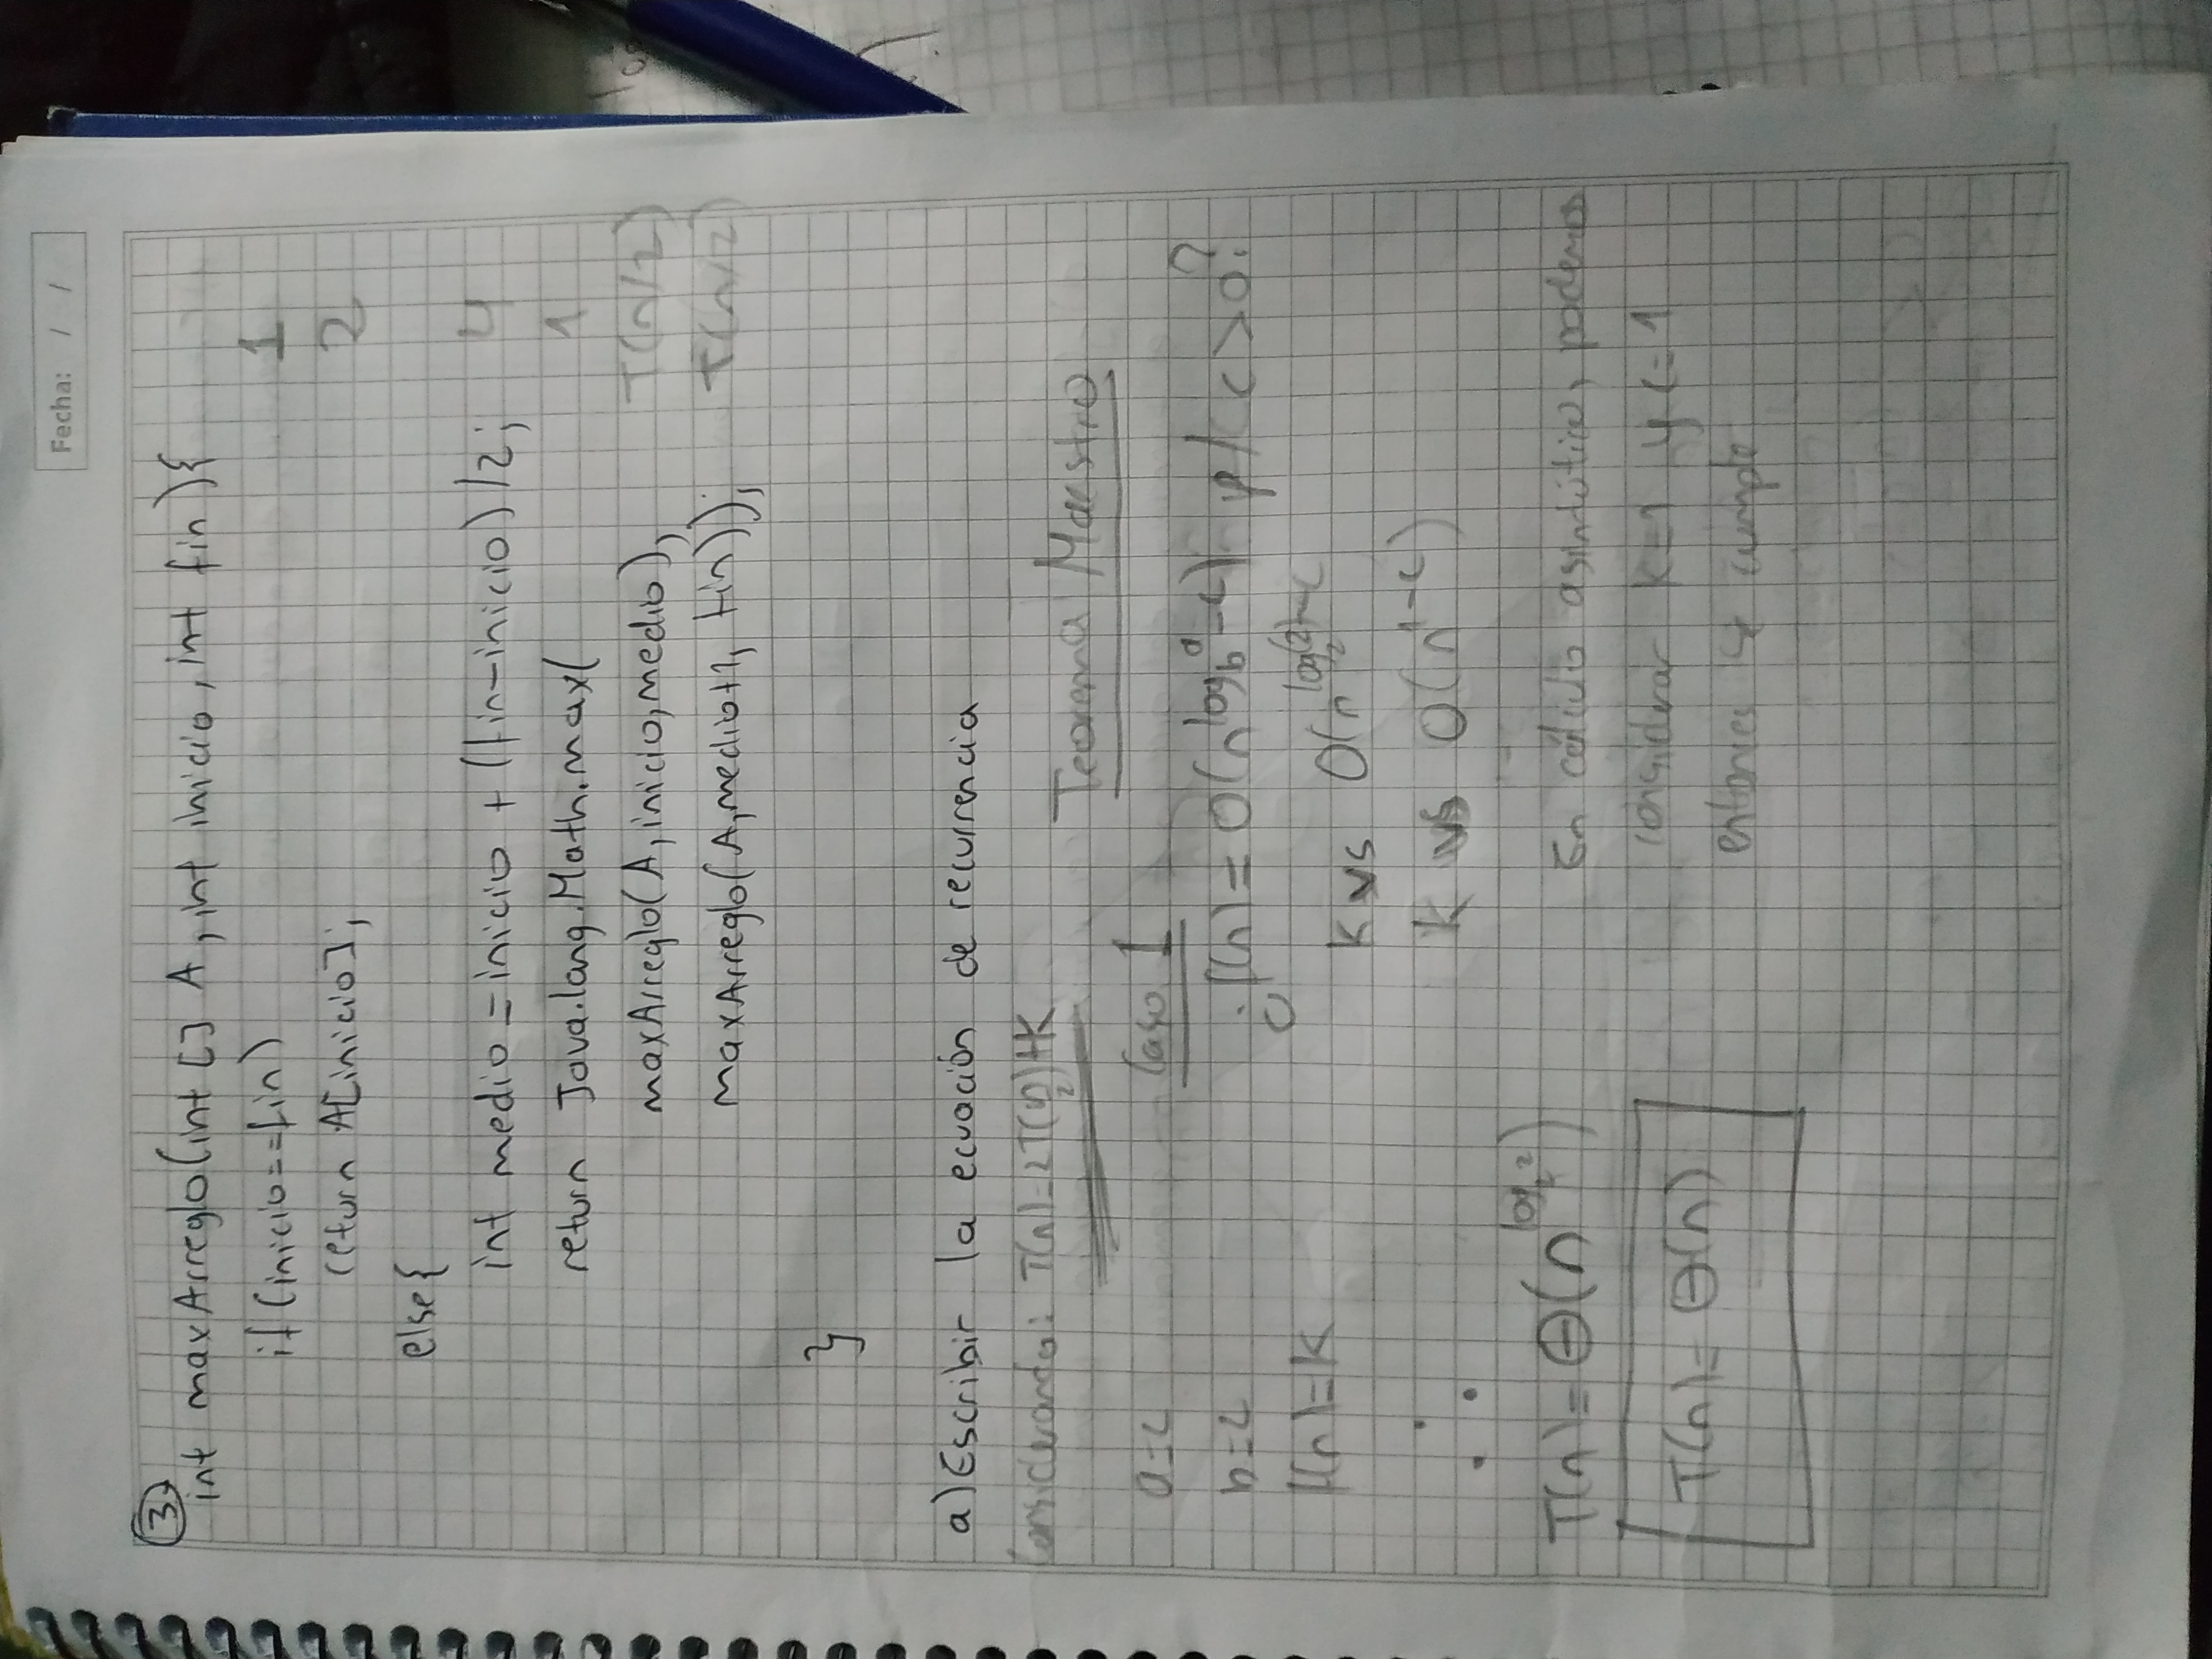 Fecha: / /
3
int maxArreglo(int [] A, int inicio, int fin){
if (inicio==fin) 1
return A[inicio]; 2
else{
int medio = inicio + (fin-inicio)/2; 4
return Java.lang.Math.max( 1
maxArreglo(A, inicio, medio), T(n/2)
maxArreglo(A, medio+1, fin)); T(n/2)
}
a) Escribir la ecuación de recurrencia
Considerando: T(n)=2T(n/2)+K
Teorema Maestro
a=2
Caso 1
b=2
¿f(n)= O(n^log_b a - c) p/ c>0?
f(n)=K
K vs O(n^log_2(2)-c
K vs O(n^1-c)
∴
T(n)= Θ(n^log_2 2)
En cálculo asintótico, podemos
considerar K=1 y c=1
T(n)= Θ(n)
entonces se cumple